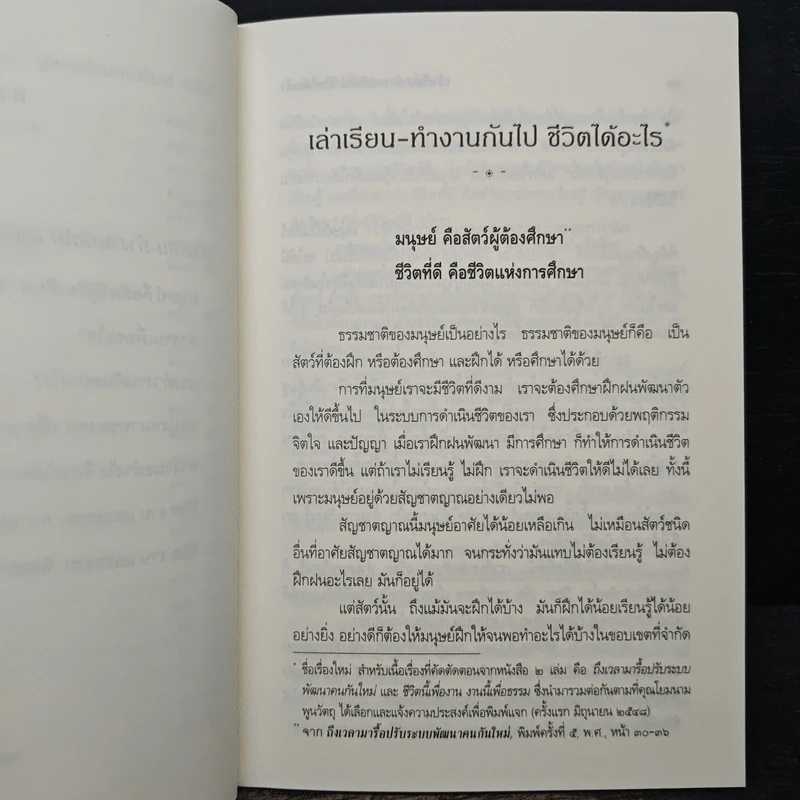 เล่าเรียน-ทำงานกันไป ชีวิตได้อะไร*
มนุษย์ คือสัตว์ผู้ต้องศึกษา**
ชีวิตที่ดี คือชีวิตแห่งการศึกษา
ธรรมชาติของมนุษย์เป็นอย่างไร ธรรมชาติของมนุษย์ก็คือ เป็น
สัตว์ที่ต้องฝึก หรือต้องศึกษา และฝึกได้ หรือศึกษาได้ด้วย
การที่มนุษย์เราจะมีชีวิตที่ดีงาม เราจะต้องศึกษาฝึกฝนพัฒนาตัว
เองให้ดีขึ้นไป ในระบบการดำเนินชีวิตของเรา ซึ่งประกอบด้วยพฤติกรรม
จิตใจ และปัญญา เมื่อเราฝึกฝนพัฒนา มีการศึกษา ก็ทำให้การดำเนินชีวิต
ของเราดีขึ้น แต่ถ้าเราไม่เรียนรู้ ไม่ฝึก เราจะดำเนินชีวิตให้ดีไม่ได้เลย ทั้งนี้
เพราะมนุษย์อยู่ด้วยสัญชาตญาณอย่างเดียวไม่พอ
สัญชาตญาณนี้มนุษย์อาศัยได้น้อยเหลือเกิน ไม่เหมือนสัตว์ชนิด
อื่นที่อาศัยสัญชาตญาณได้มาก จนกระทั่งว่ามันแทบไม่ต้องเรียนรู้ ไม่ต้อง
ฝึกฝนอะไรเลย มันก็อยู่ได้
แต่สัตว์นั้น ถึงแม้มันจะฝึกได้บ้าง มันก็ฝึกได้น้อยเรียนรู้ได้น้อย
อย่างยิ่ง อย่างดีก็ต้องให้มนุษย์ฝึกให้จนพอทำอะไรได้บ้างในขอบเขตที่จำกัด
* ชื่อเรื่องใหม่ สำหรับเนื้อเรื่องที่คัดตัดตอนจากหนังสือ ๒ เล่ม คือ ถึงเวลามารื้อปรับระบบ
พัฒนาคนกันใหม่ และ ชีวิตนี้เพื่องาน งานนี้เพื่อธรรม ซึ่งนำมารวมต่อกันตามที่คุณโยมนาม
พูนวัตถุ ได้เลือกและแจ้งความประสงค์เพื่อพิมพ์แจก (ครั้งแรก มิถุนายน ๒๕๔๘)
** จาก ถึงเวลามารื้อปรับระบบพัฒนาคนกันใหม่, พิมพ์ครั้งที่ ๕, พ.ศ., หน้า ๓๐-๓๖